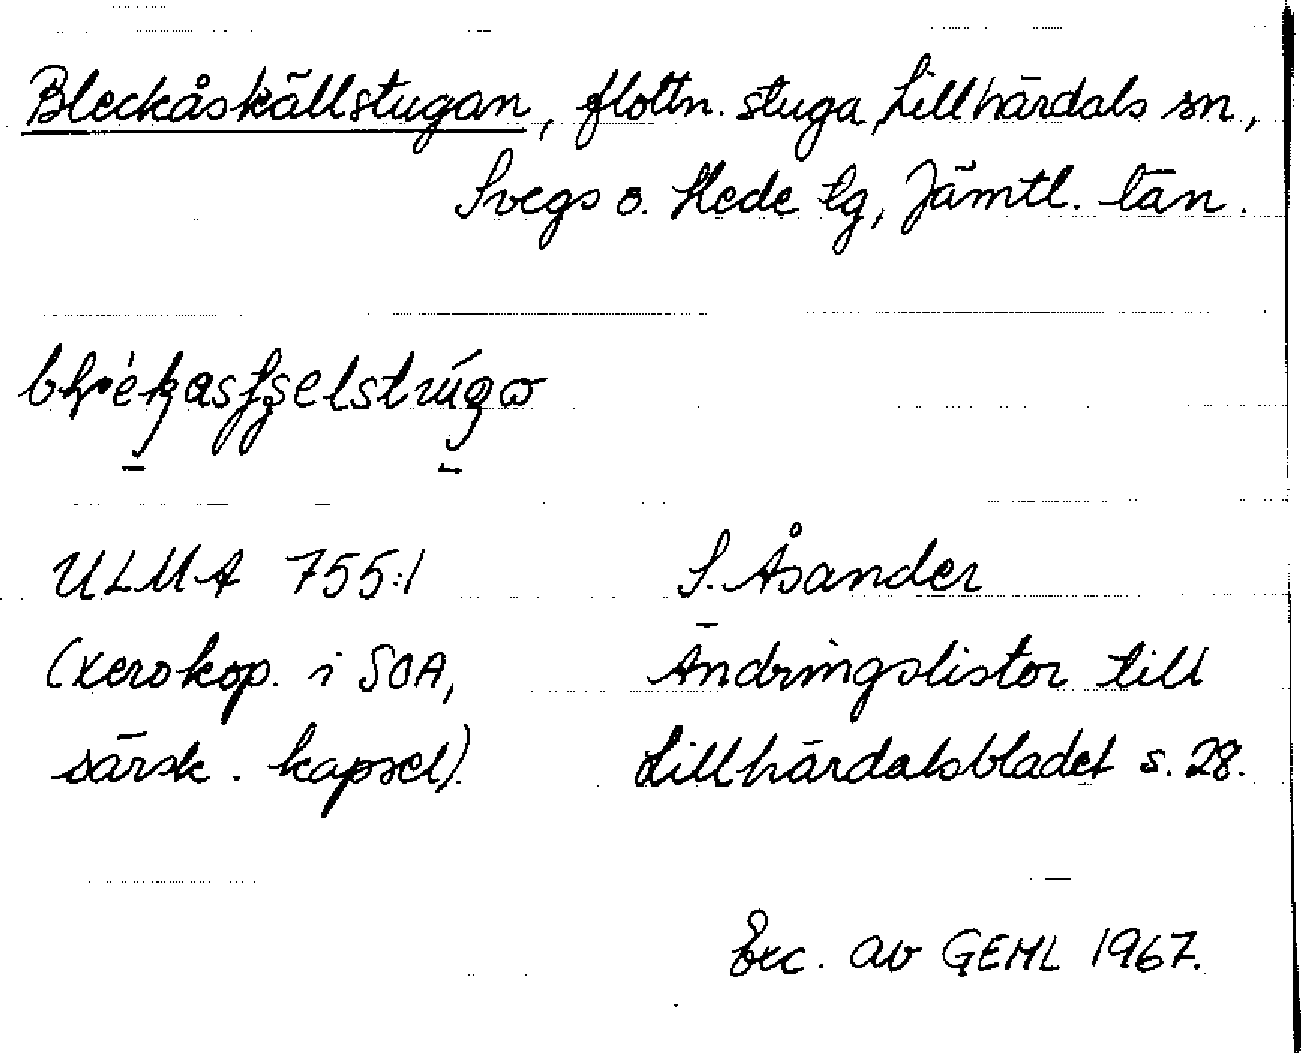 Bleckåskällstugan, flottn. stuga, Lillhärdals sn,
Svegs o. Hede lg, Jämtl. län.
ULMA 755:1 S. Åsander
(xerokop. i SOA, Ändringslistor till
särsk. kapsel). Lillhärdalsbladet s. 28.
Exc. av GEHL 1967.